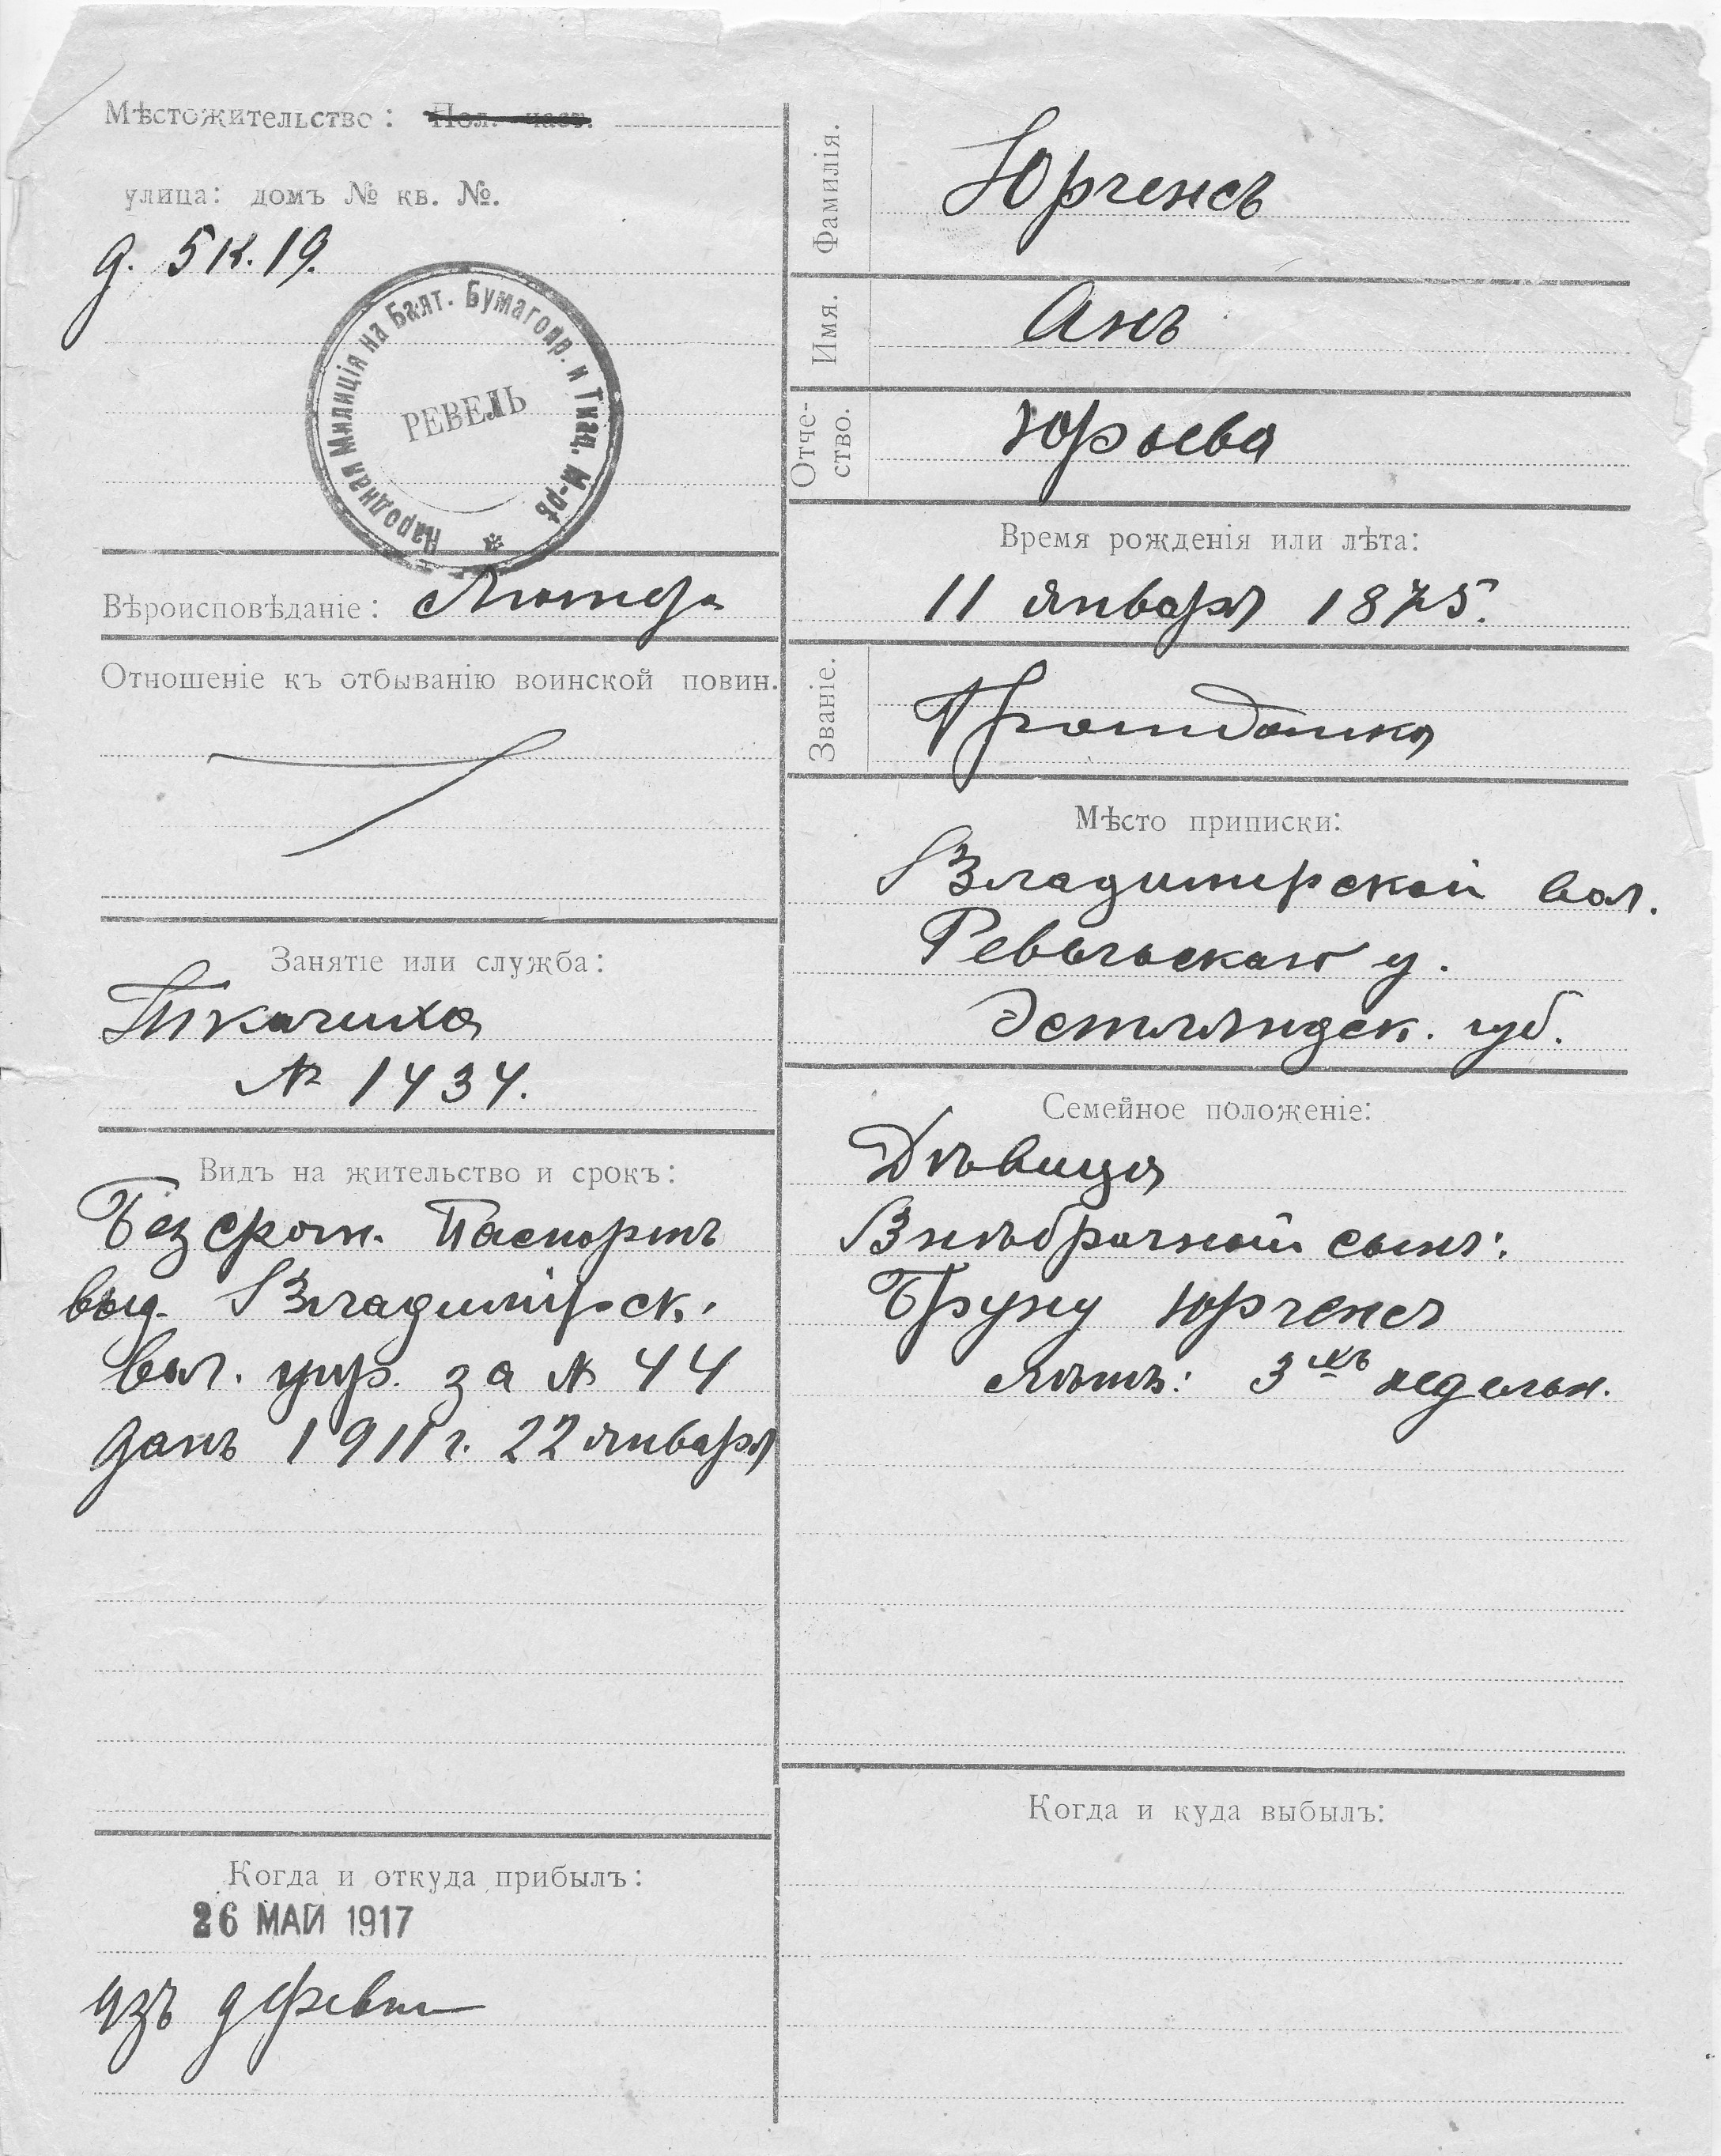 Мѣстожительство: Пол. част.
улица: домъ № кв. №.
д. 5 к. 19.
Народная Милиція на Балт. Бумагопр. и Ткац. М-рѣ
РЕВЕЛЬ
Вѣроисповѣданіе: Лютер.
Отношеніе къ отбыванію воинской повин.
Занятіе или служба:
Ткачиха
№ 1434.
Видъ на жительство и срокъ:
Безсрочн. Паспортъ
выд. Владимірск.
вол. упр. за № 44
данъ 1911 г. 22 января
Когда и откуда прибылъ:
26 МАЙ 1917
изъ деревни
Фамилія.
Юргенсъ
Имя.
Анъ
Отче-
ство.
Юрьева
Время рожденія или лѣта:
11 января 1875.
Званіе.
Гражданка
Мѣсто приписки:
Владимирской вол.
Ревельскаго у.
Эстляндск. губ.
Семейное положеніе:
Дѣвица
Внѣбрачный сынъ:
Бруну Юргенсъ
лѣтъ: 3хъ недельн.
Когда и куда выбылъ: